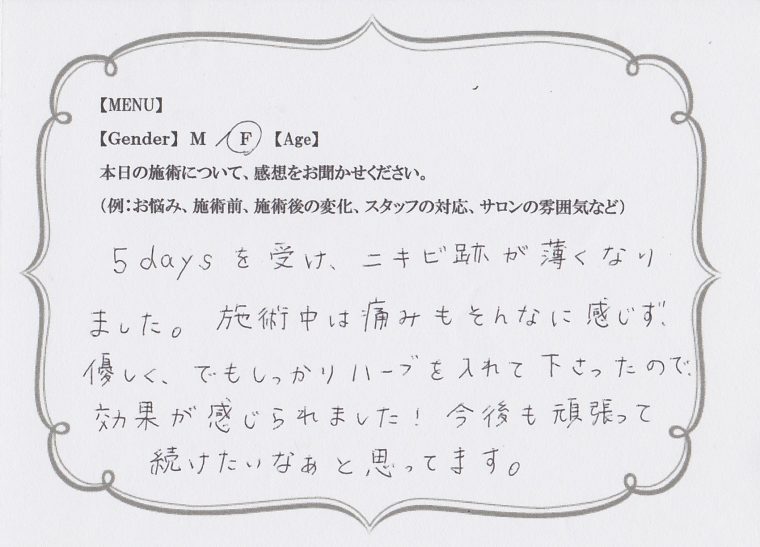 【MENU】
【Gender】 M / F 【Age】
本日の施術について、感想をお聞かせください。
(例:お悩み、施術前、施術後の変化、スタッフの対応、サロンの雰囲気など)
5daysを受け、ニキビ跡が薄くなり
ました。施術中は痛みもそんなに感じず、
優しく、でもしっかりハーブを入れて下さったので、
効果が感じられました!今後も頑張って
続けたいなぁと思ってます。